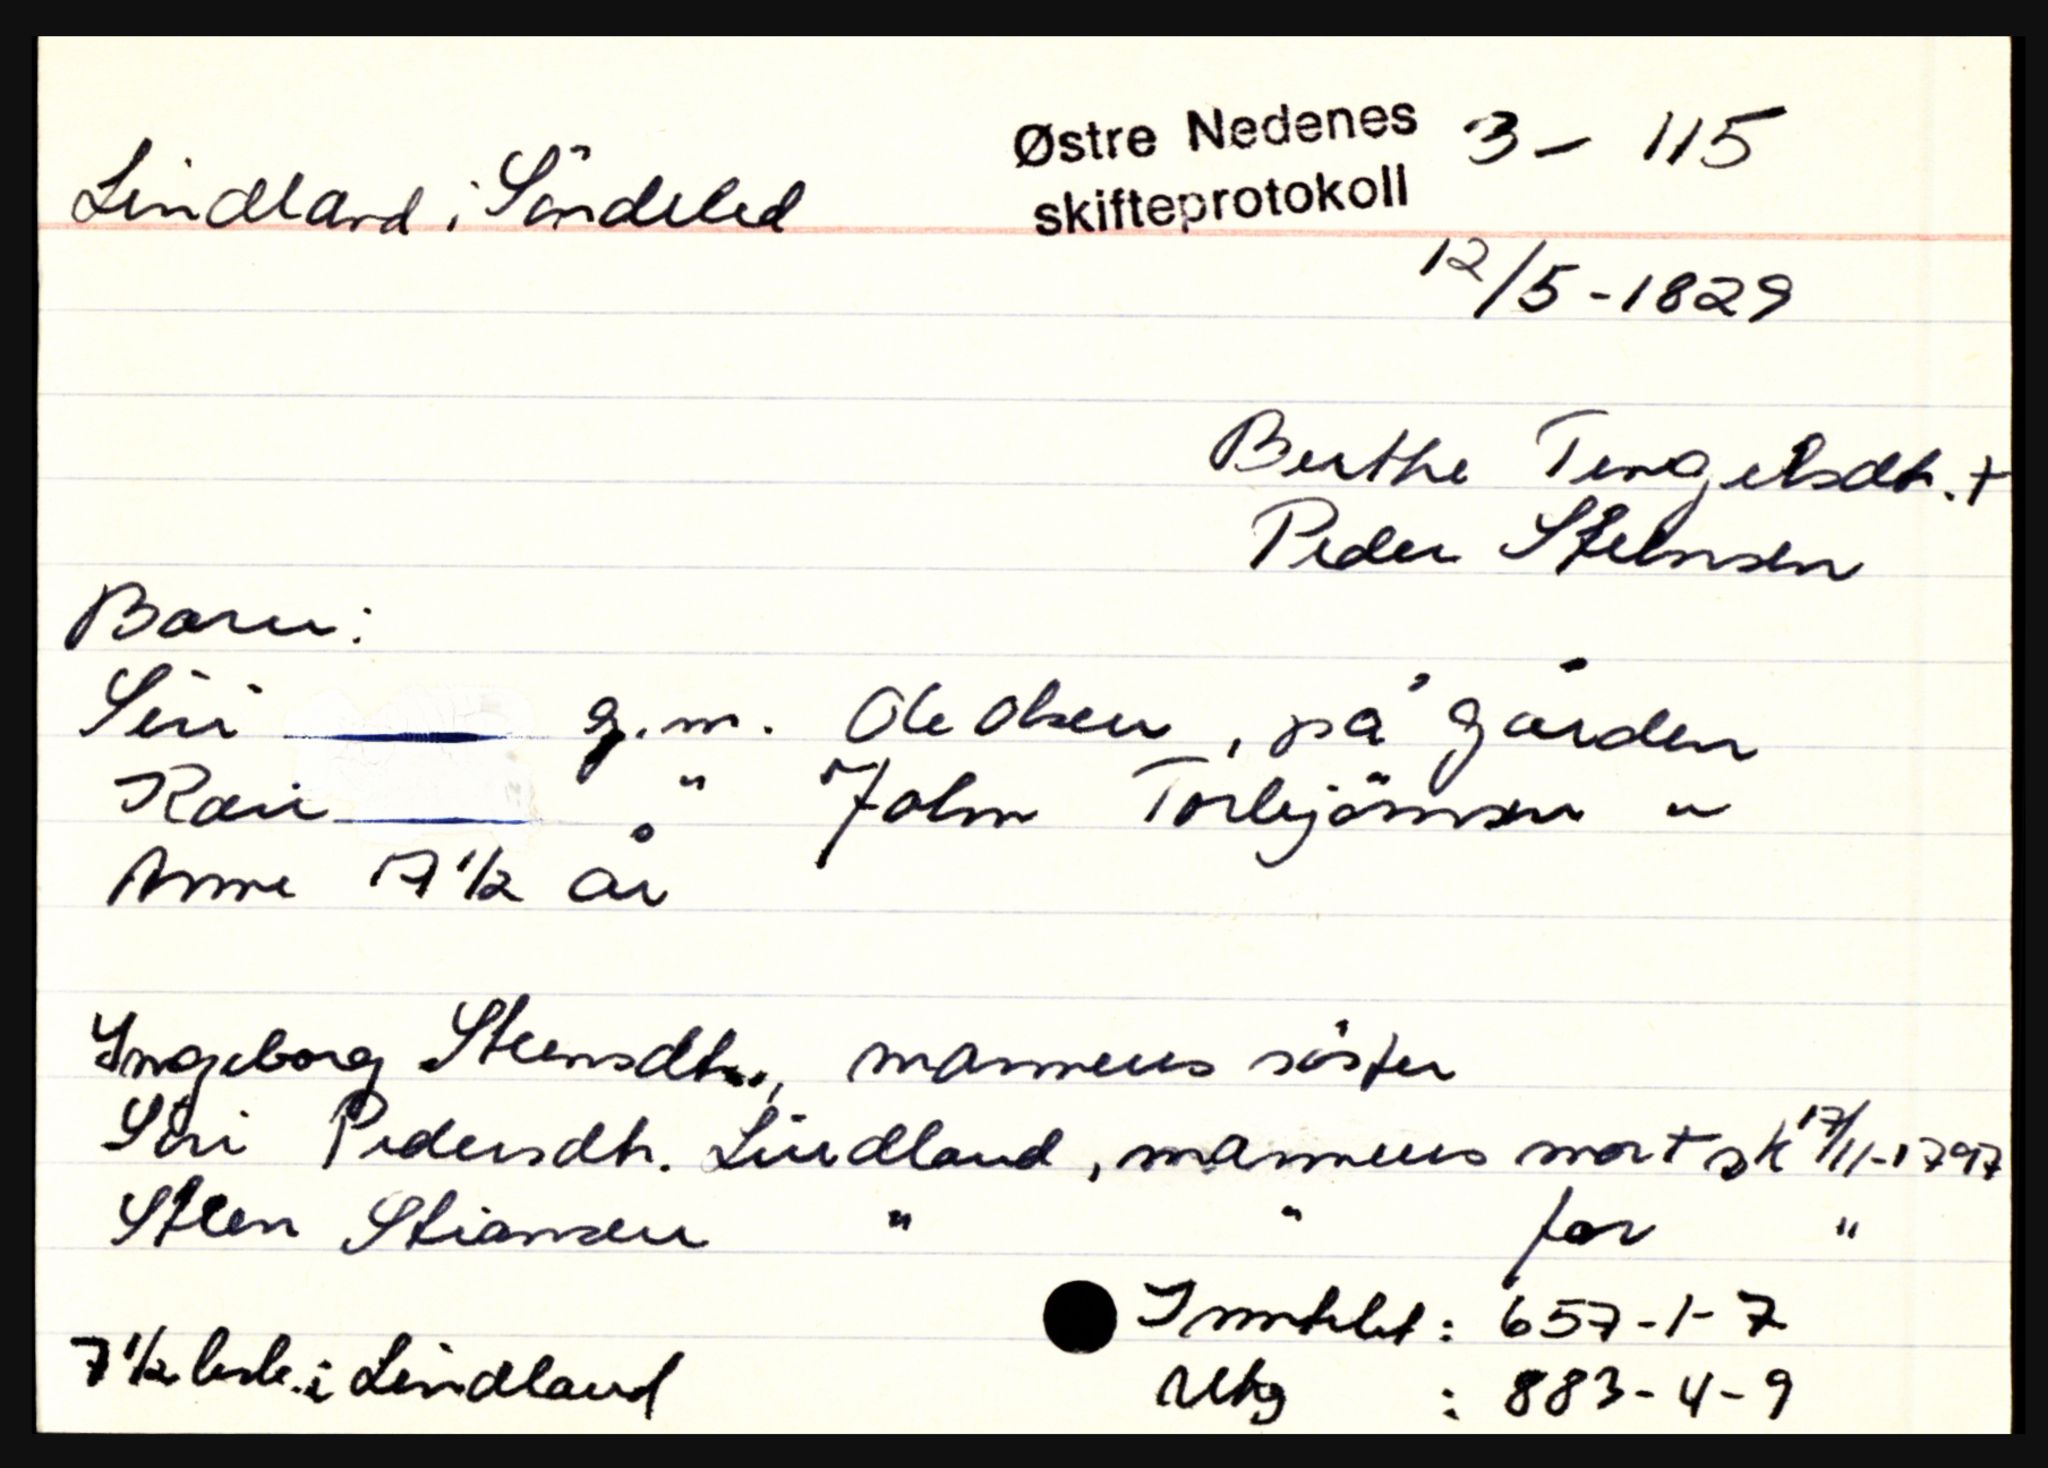 Østre Nedenes 3 - 115
Lindland i Söndeled skifteprotokoll
12/5 - 1829
Berthe Tengelsdtr. +
Peder Steensen
Barn:
Siri g.m. Ole Olsen, på gården
Kari " John Torbjörnsen "
Anne 17 1/2 år
Ingeborg Steensdtr., mannens söster
Siri Pedersdtr. Lindland, mannens mor + sk 17/11-1797
Steen Stiansen " " far "
Inntekt : 657-1-7
7 1/2 i Lindland Utg : 883-4-9